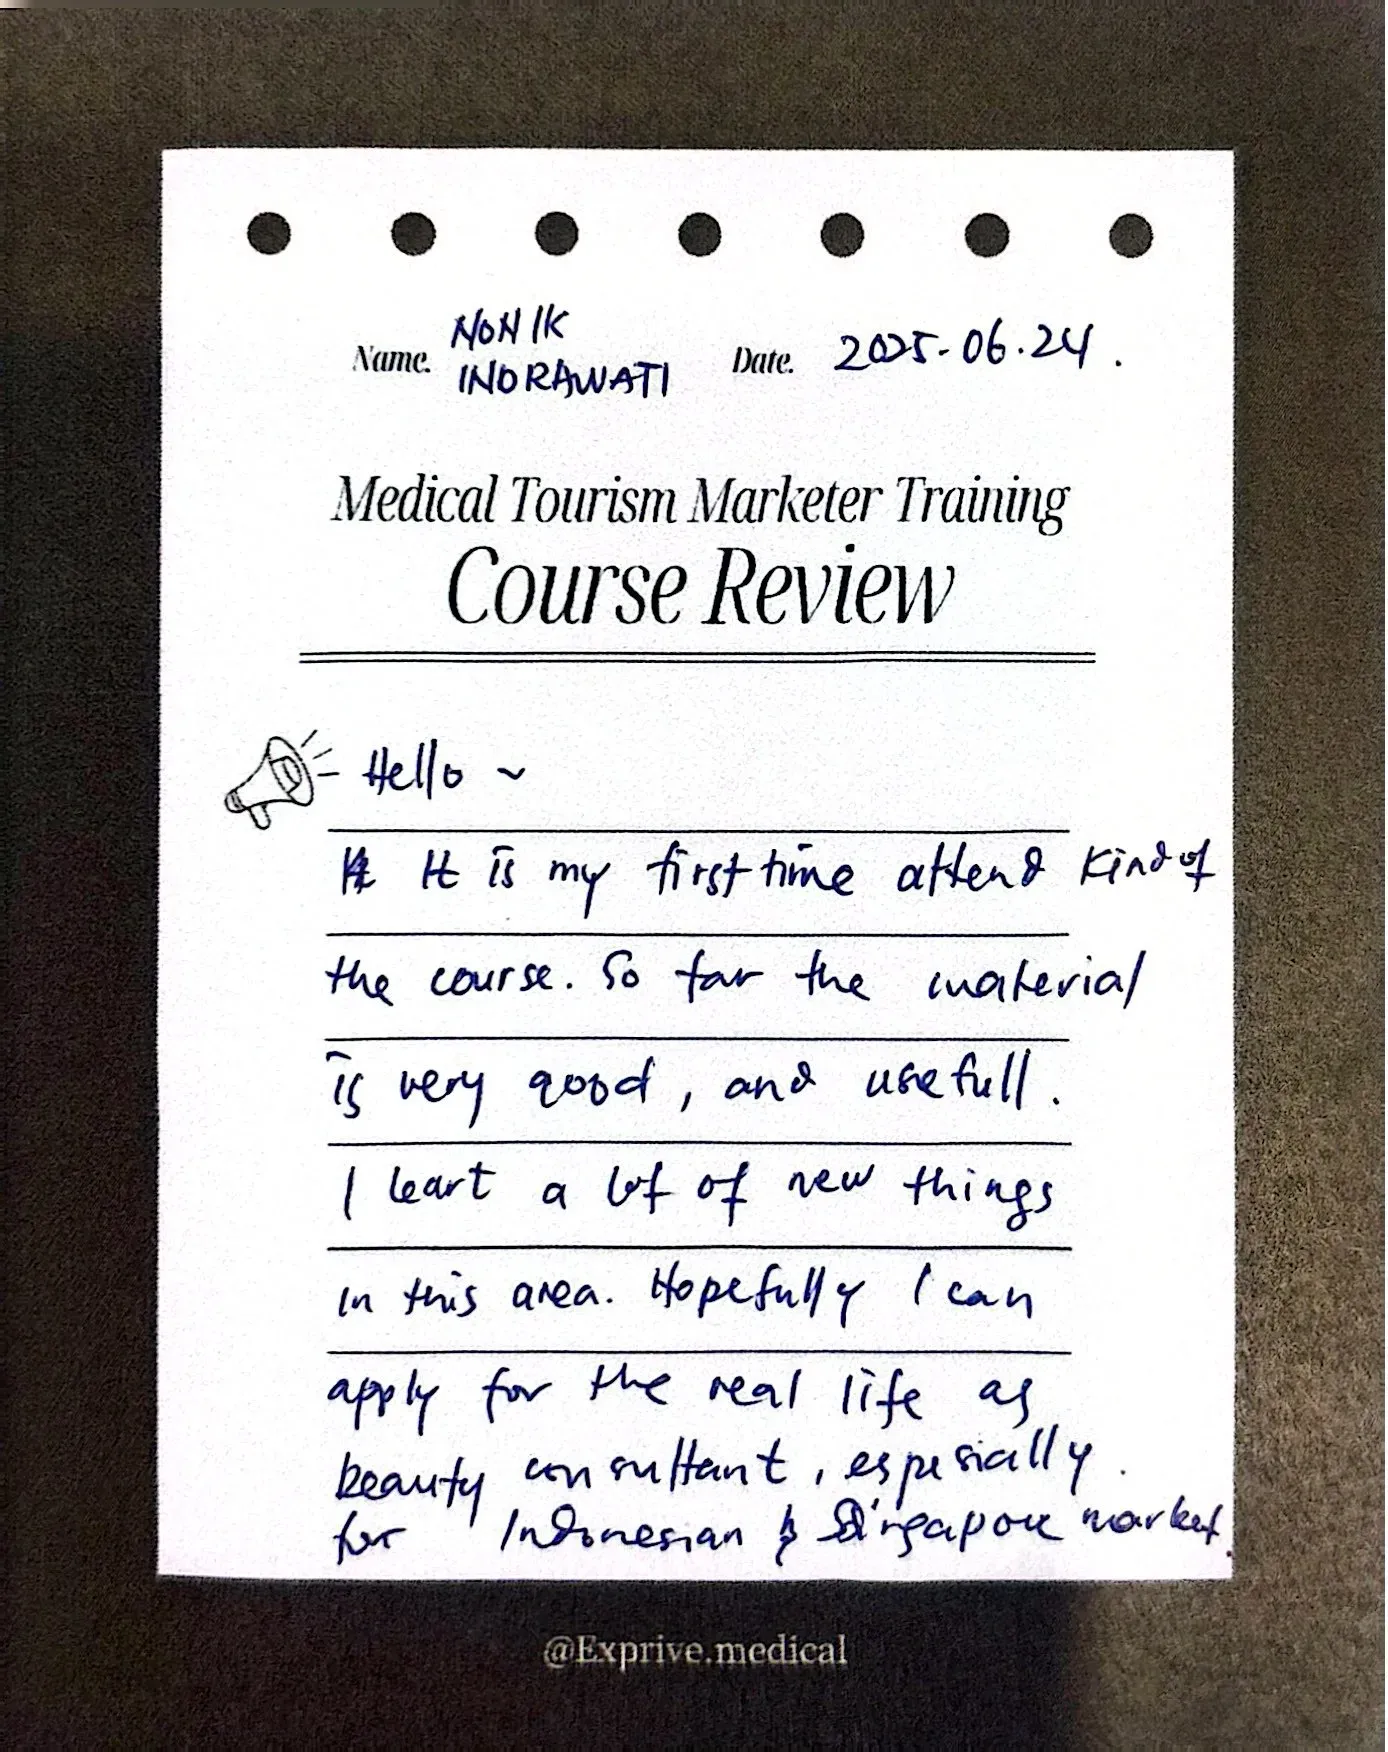 Name. NONIK INDRAWATI Date. 2025.06.24.
Medical Tourism Marketer Training
Course Review
Hello ~
It is my first time attend kind of
the course. So far the material
is very good, and usefull.
I leart a lot of new things
in this area. Hopefully I can
apply for the real life as
beauty consultant, espesially
for Indonesian & Singapore market.
@Exprive.medical